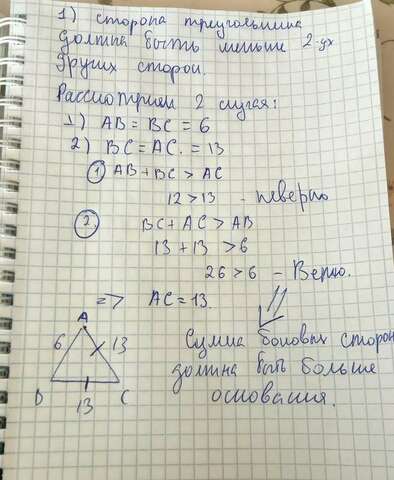 1) сторона треугольника
должна быть меньше 2-ух
других сторон.
Рассмотрим 2 случая:
1) AB = BC = 6
2) BC = AC. = 13
1) AB + BC > AC
12 > 13 - неверно
2. BC + AC > AB
13 + 13 > 6
26 > 6 - Верно.
=> AC = 13.
A
6 13
B 13 C
Сумма боковых сторон
должна быть больше
основания.